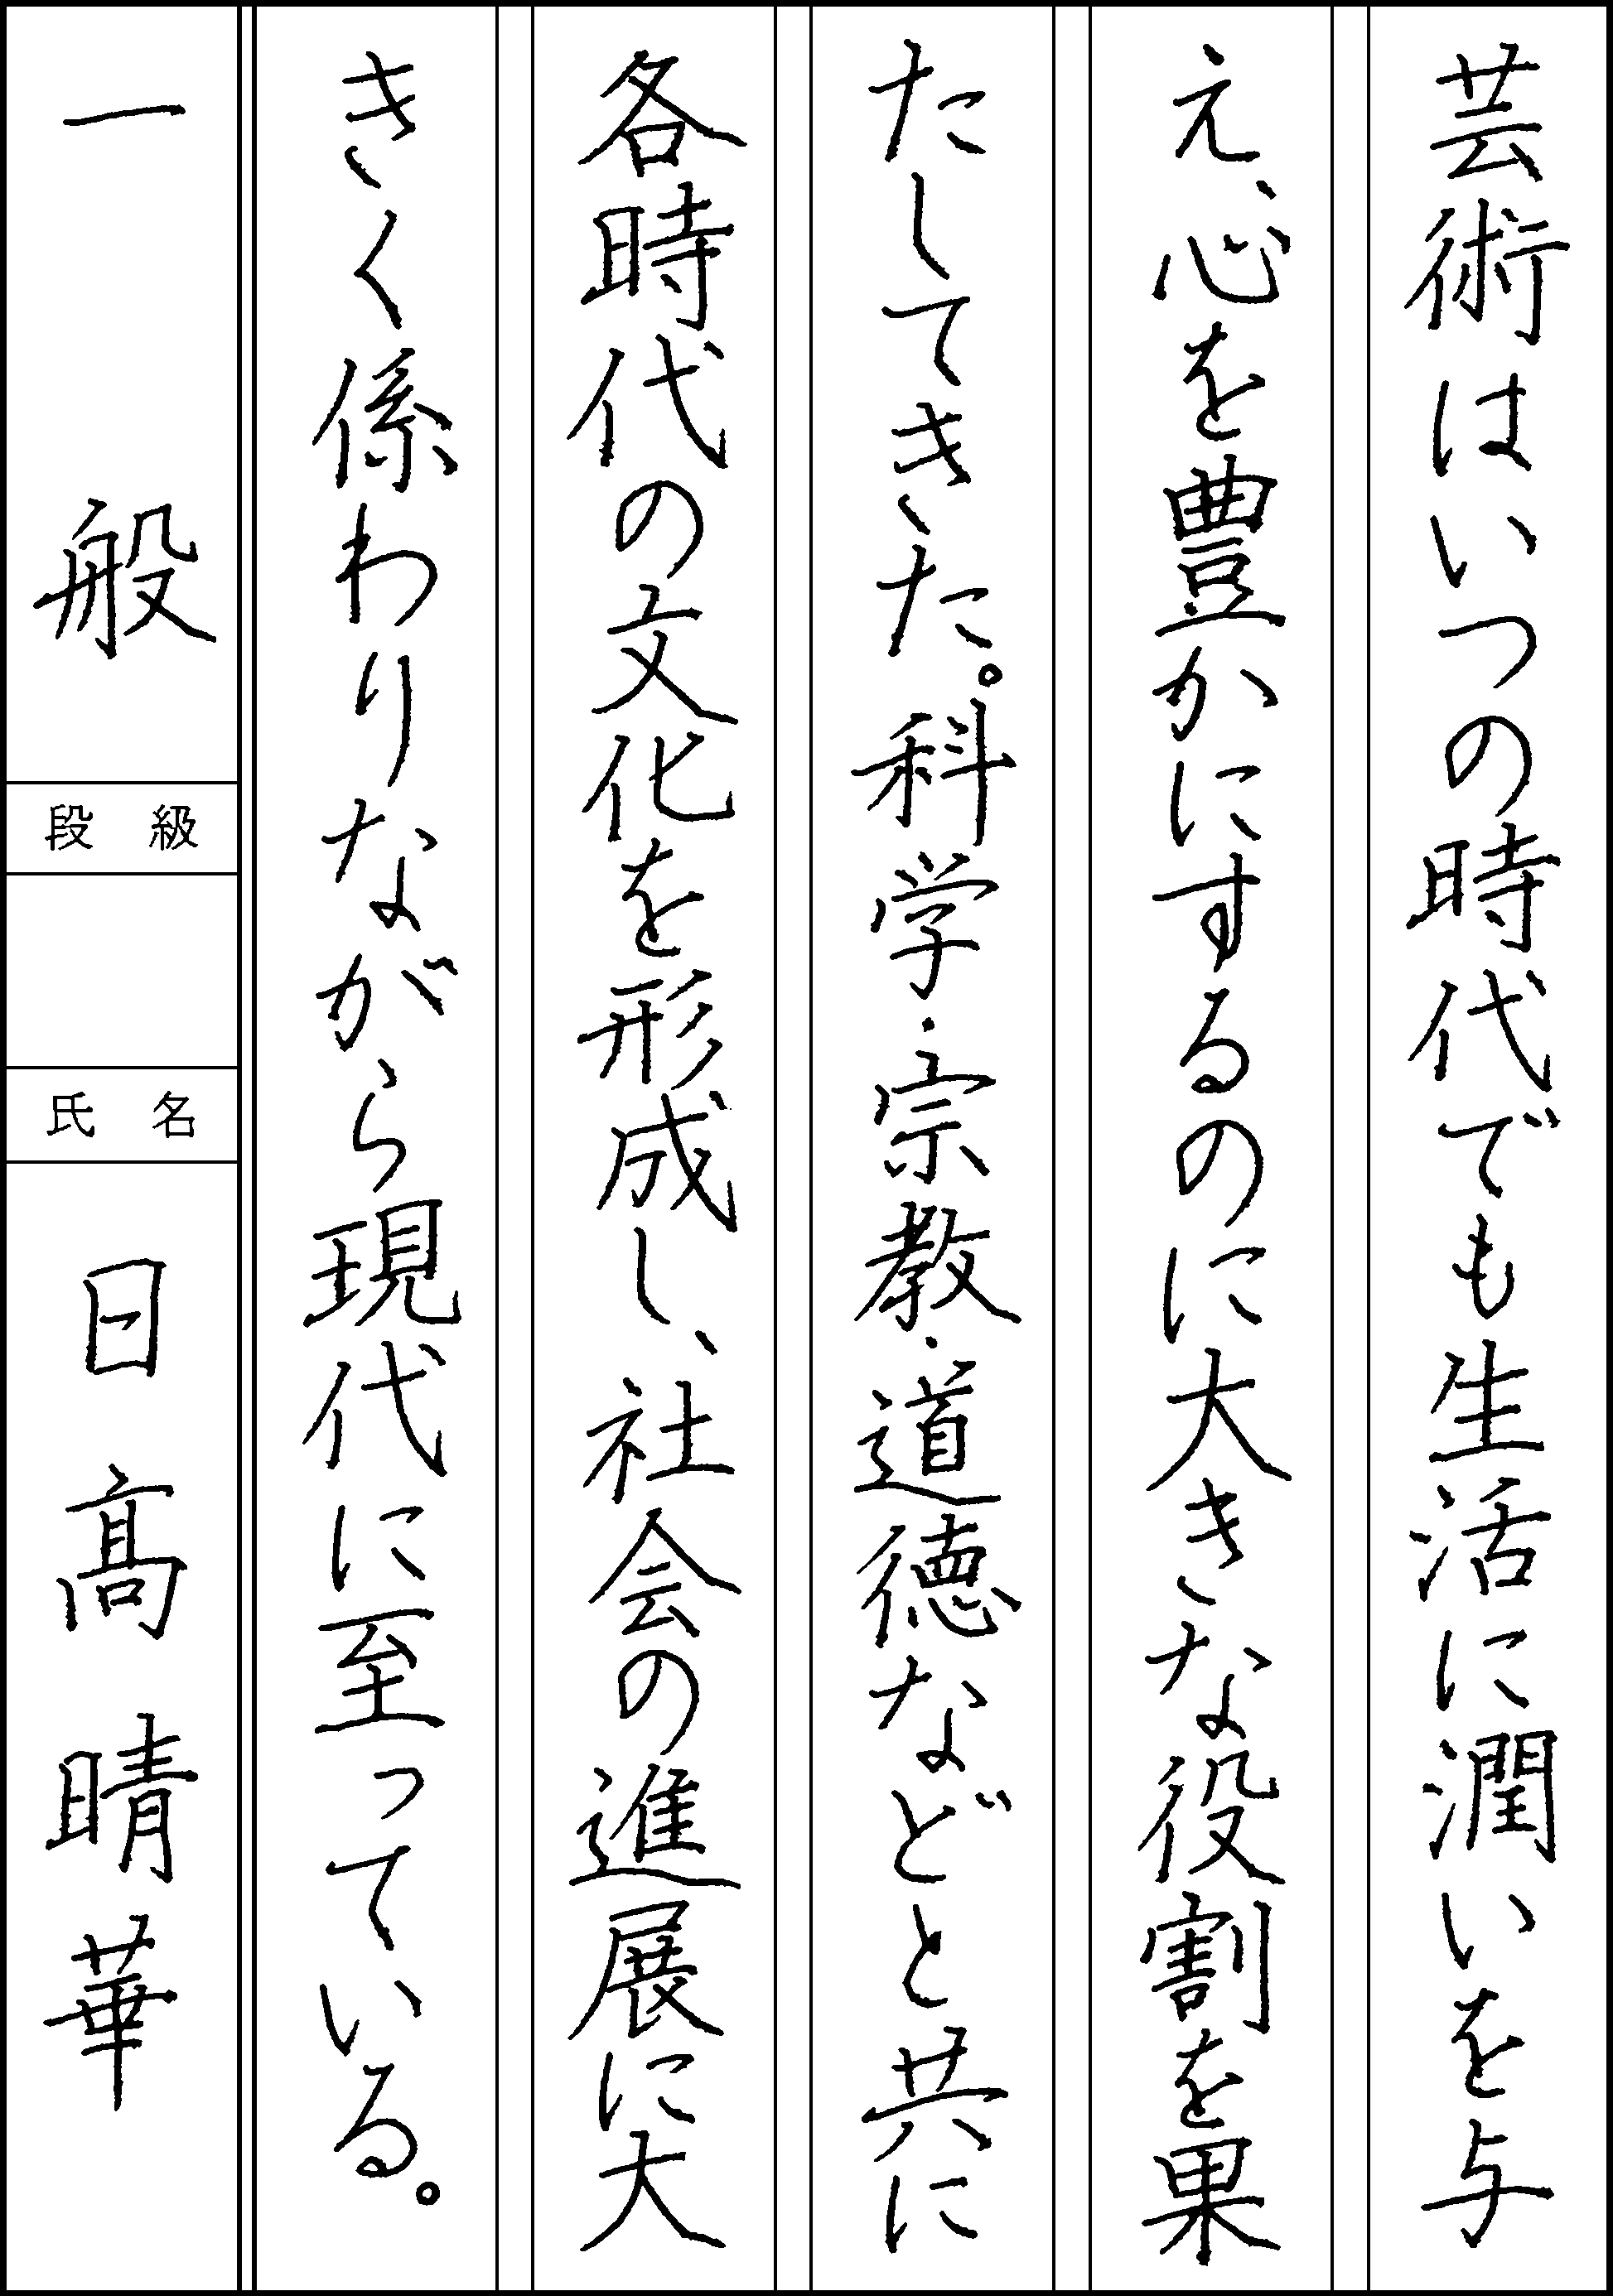 芸術はいつの時代でも生活に潤いを与
え、心を豊かにするのに大きな役割を果
たしてきた。科学・宗教・道徳などと共に
各時代の文化を形成し、社会の進展に大
きく係わりながら現代に至っている。
一般
段級
氏名
日髙晴華